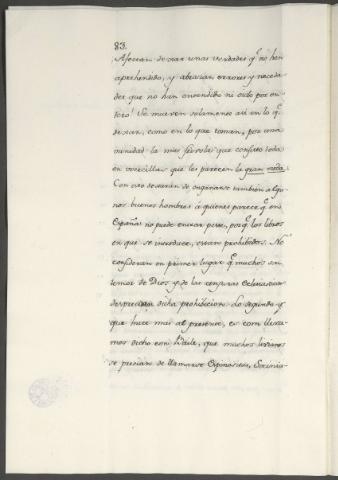 83.
Afectan dexar unas verdades q.e no han
aprehendido, y abrazan errores y neceda-
des que no han entendido ni oido por en-
tero! Se mueven solamente asi en lo q.e
dexan, como en lo que toman, por una
vanidad la mas frivola que consiste toda
en vocecillas que les parecen la gran moda.
Con esto dexarán de engañarse tambien algu-
nos buenos hombres a quienes parece q.e en
España no puede entrar peste, porq.e los libros
en que se introduce, estan prohibidos. No
consideran en primer lugar q.e muchos sin
temor de Dios y de las censuras Eclesiasticas
desprecian dicha prohibicion. Lo segundo y
que hace mas al presente, es com lleva-
mos dicho con Baile, que muchos
se precian de llamarse Espinosistas,